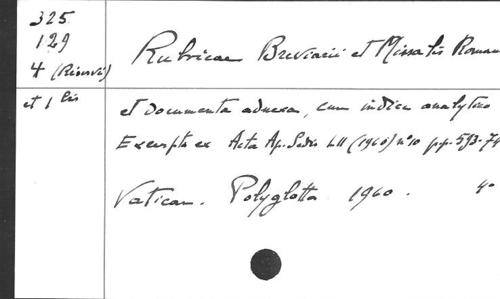 325
129
4 (Riservé)
et 1 bis
Rubricae Breviarii et Missalis Roman
et Documenta adnexa, cum indice analytico
Excerpta ex Acta Ap. Sedis LII (1960) n° 10 pp. 593-74
Vatican. Polyglotta 1960. 4°